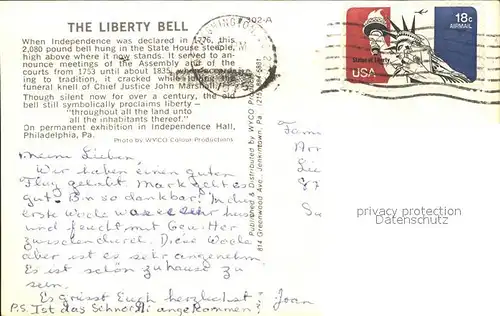 THE LIBERTY BELL
When Independence was declared in 1776, this
2,080 pound bell hung in the State House steeple,
high above where it now stands. It served to an-
nounce meetings of the Assembly and of the
courts from 1753 until about 1835, when, accord-
ing to tradition, it cracked while tolling the
funeral knell of Chief Justice John Marshall.
Though silent now for over a century, the old
bell still symbolically proclaims liberty –
"throughout all the land unto
all the inhabitants thereof."
On permanent exhibition in Independence Hall,
Philadelphia, Pa.
Photo by WYCO Colour Productions
302-A
Published & Distributed by WYCO
814 Greenwood Ave., Jenkintown, Pa. (215)
18c
AIRMAIL
Statue of Liberty
USA
Meine Lieben,
Wir haben einen guten
Flug gehabt. Mark geht es
gut. Bin so dankbar! Die
erste Woche war es sehr heiss
und feucht mit Gewitter
zwischendurch. Diese Woche
aber ist es sehr angenehm.
Es ist schön zuhause zu
sein.
Es grüsst Euch herzlichst: Joan
P.S. Ist das angekommen?
Fam
Arr
Su
privacy protection
www.oldthing.de